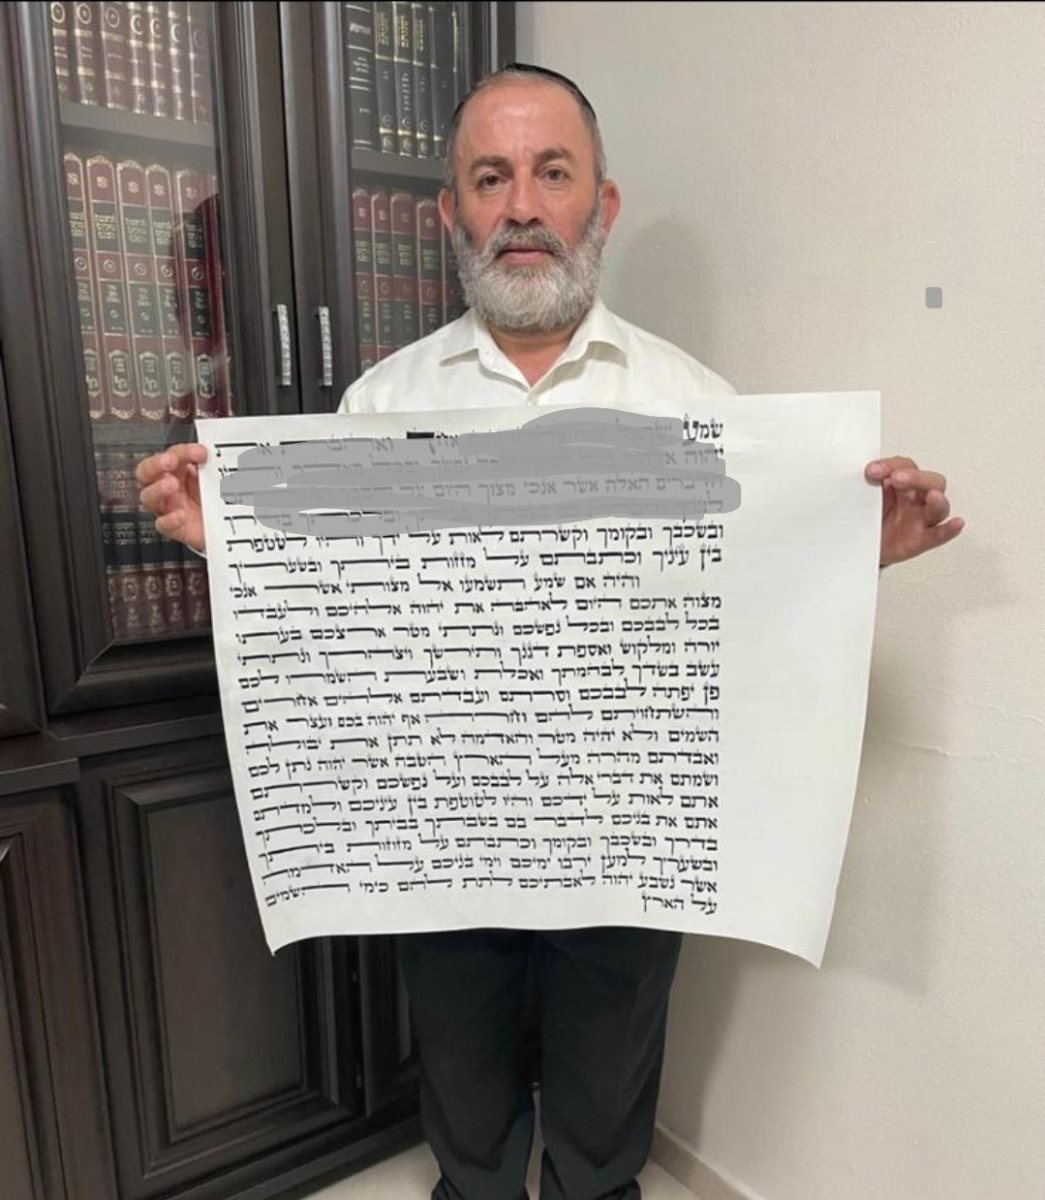 שמע ישראל יהוה ואהבת את
יהוה ובכל מאדך
הדברים האלה אשר אנכי מצוך היום על לבבך
ובלכתך בדרך
ובשכבך ובקומך וקשרתם לאות על ידך והיו לטטפת
בין עיניך וכתבתם על מזזות ביתך ובשעריך
והיה אם שמע תשמעו אל מצותי אשר אנכי
מצוה אתכם היום לאהבה את יהוה אלהיכם ולעבדו
בכל לבבכם ובכל נפשכם ונתתי מטר ארצכם בעתו
יורה ומלקוש ואספת דגנך ותירשך ויצהרך ונתתי
עשב בשדך לבהמתך ואכלת ושבעת השמרו לכם
פן יפתה לבבכם וסרתם ועבדתם אלהים אחרים
והשתחויתם להם וחרה אף יהוה בכם ועצר את
השמים ולא יהיה מטר והאדמה לא תתן את יבולה
ואבדתם מהרה מעל הארץ הטבה אשר יהוה נתן לכם
ושמתם את דברי אלה על לבבכם ועל נפשכם וקשרתם
אתם לאות על ידכם והיו לטוטפת בין עיניכם ולמדתם
אתם את בניכם לדבר בם בשבתך בביתך ובלכתך
בדרך ובשכבך ובקומך וכתבתם על מזוזות ביתך
ובשעריך למען ירבו ימיכם וימי בניכם על האדמה
אשר נשבע יהוה לאבתיכם לתת להם כימי השמים
על הארץ